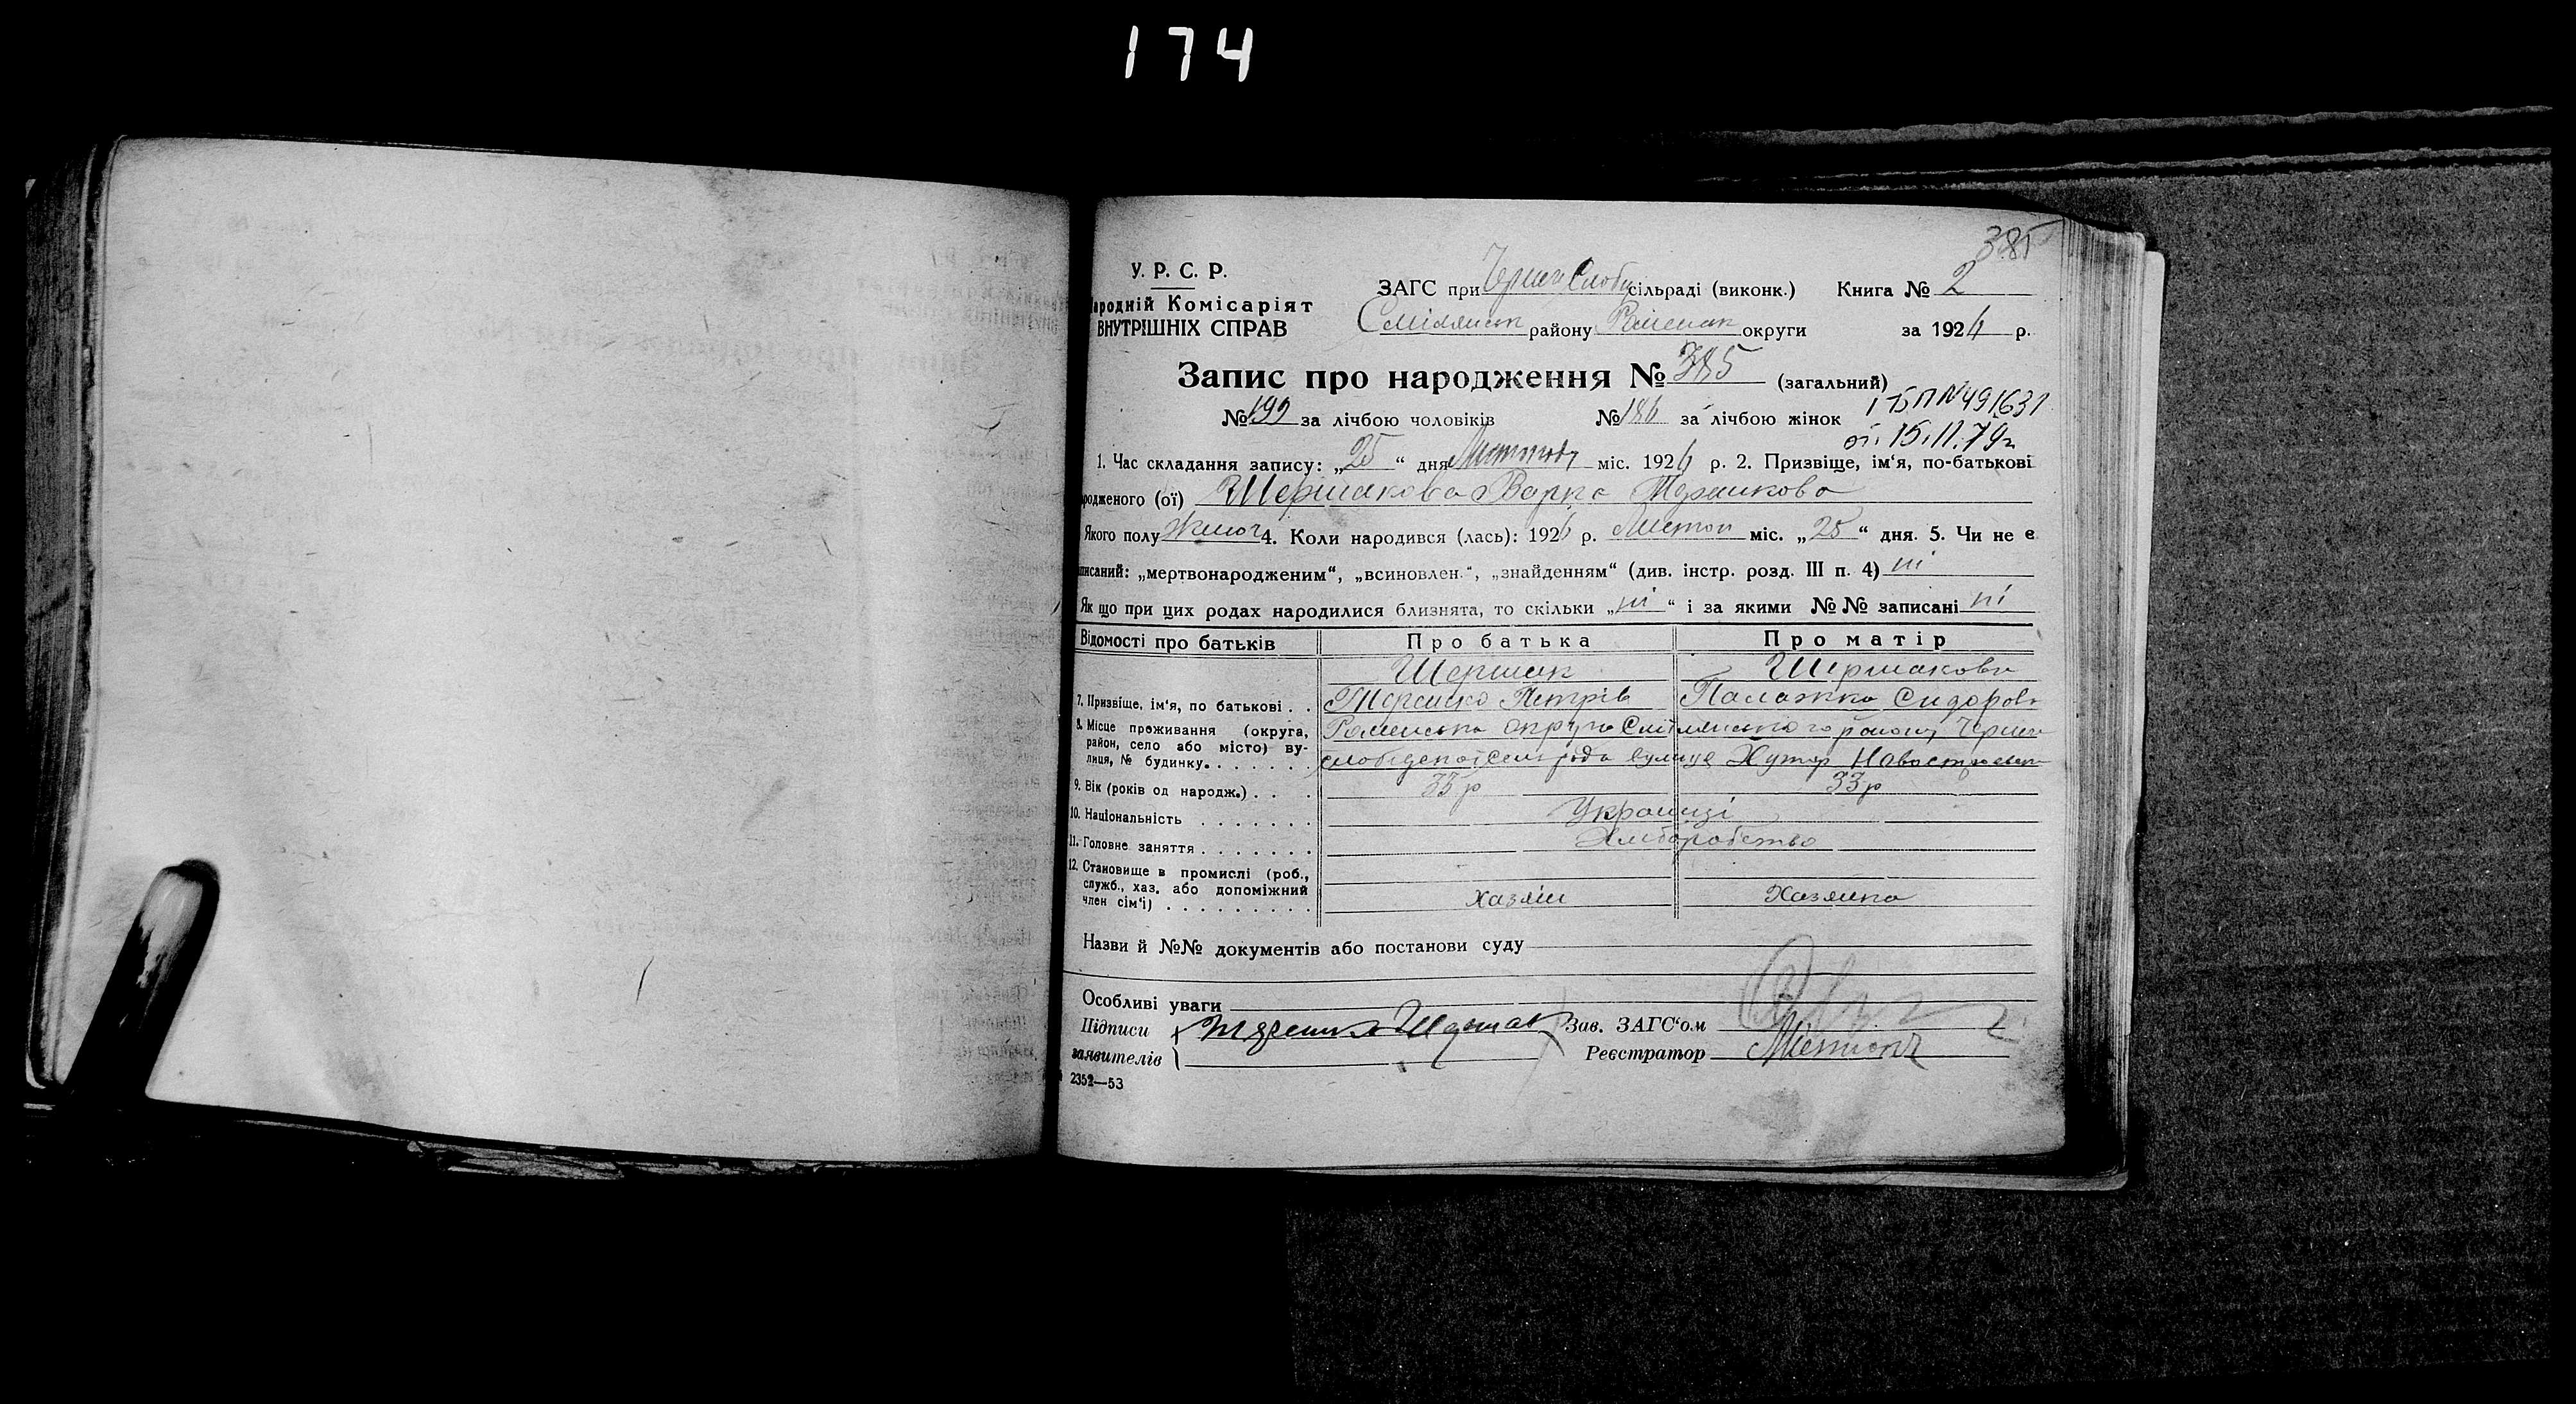 174
385
У. Р. С. Р.
ародній Комісаріят
ВНУТРІШНІХ СПРАВ
ЗАГС при Черне Слобід сільраді (виконк.) Книга № 2
Смілянськ району Роменськ округи за 1926 р.
Запис про народження № 385 (загальний)
№ 199 за лічбою чоловіків № 186 за лічбою жінок
1 БП N 491631
от 15.11.79г
1. Час складання запису: „25“ дня Листопаду міс. 1926 р. 2. Призвіще, ім‘я, по-батькові
родженого (ої) Шершакова Варка Терешкова
Якого полу жіноч 4. Коли народився (лась): 1926 р. Листоп міс. „25“ дня. 5. Чи не є
писаний: „мертвонародженим“, „всиновлен.“, „знайденням“ (див. інстр. розд. III п. 4) ні
Як що при цих родах народилися близнята, то скільки „ні“ і за якими №№ записані ні
Відомості про батьків Про батька Про матір
Шершак Шершакова
7. Призвіще, ім‘я, по батькові . . Терешко Петрів Палажка Сидорова
8. Місце проживання (округа, Роменська округа Смілянського району Черне
район, село або місто) ву-
лиця, № будинку. . . . . . . слобідської сельрада вулиця Хутор
9. Вік (років од народж.) . . . 35 р 33 р
10. Національність . . . . . . . Українці
11. Головне заняття . . . . . . . Хліборобство
12. Становище в промислі (роб.,
служб., хаз. або допоміжний
член сім‘ї) . . . . . . . . . Хазяїн Хазяйка
Назви й №№ документів або постанови суду
Особливі уваги
Підписи Зав. ЗАГС‘ом
заявителів Реєстратор
2352—53